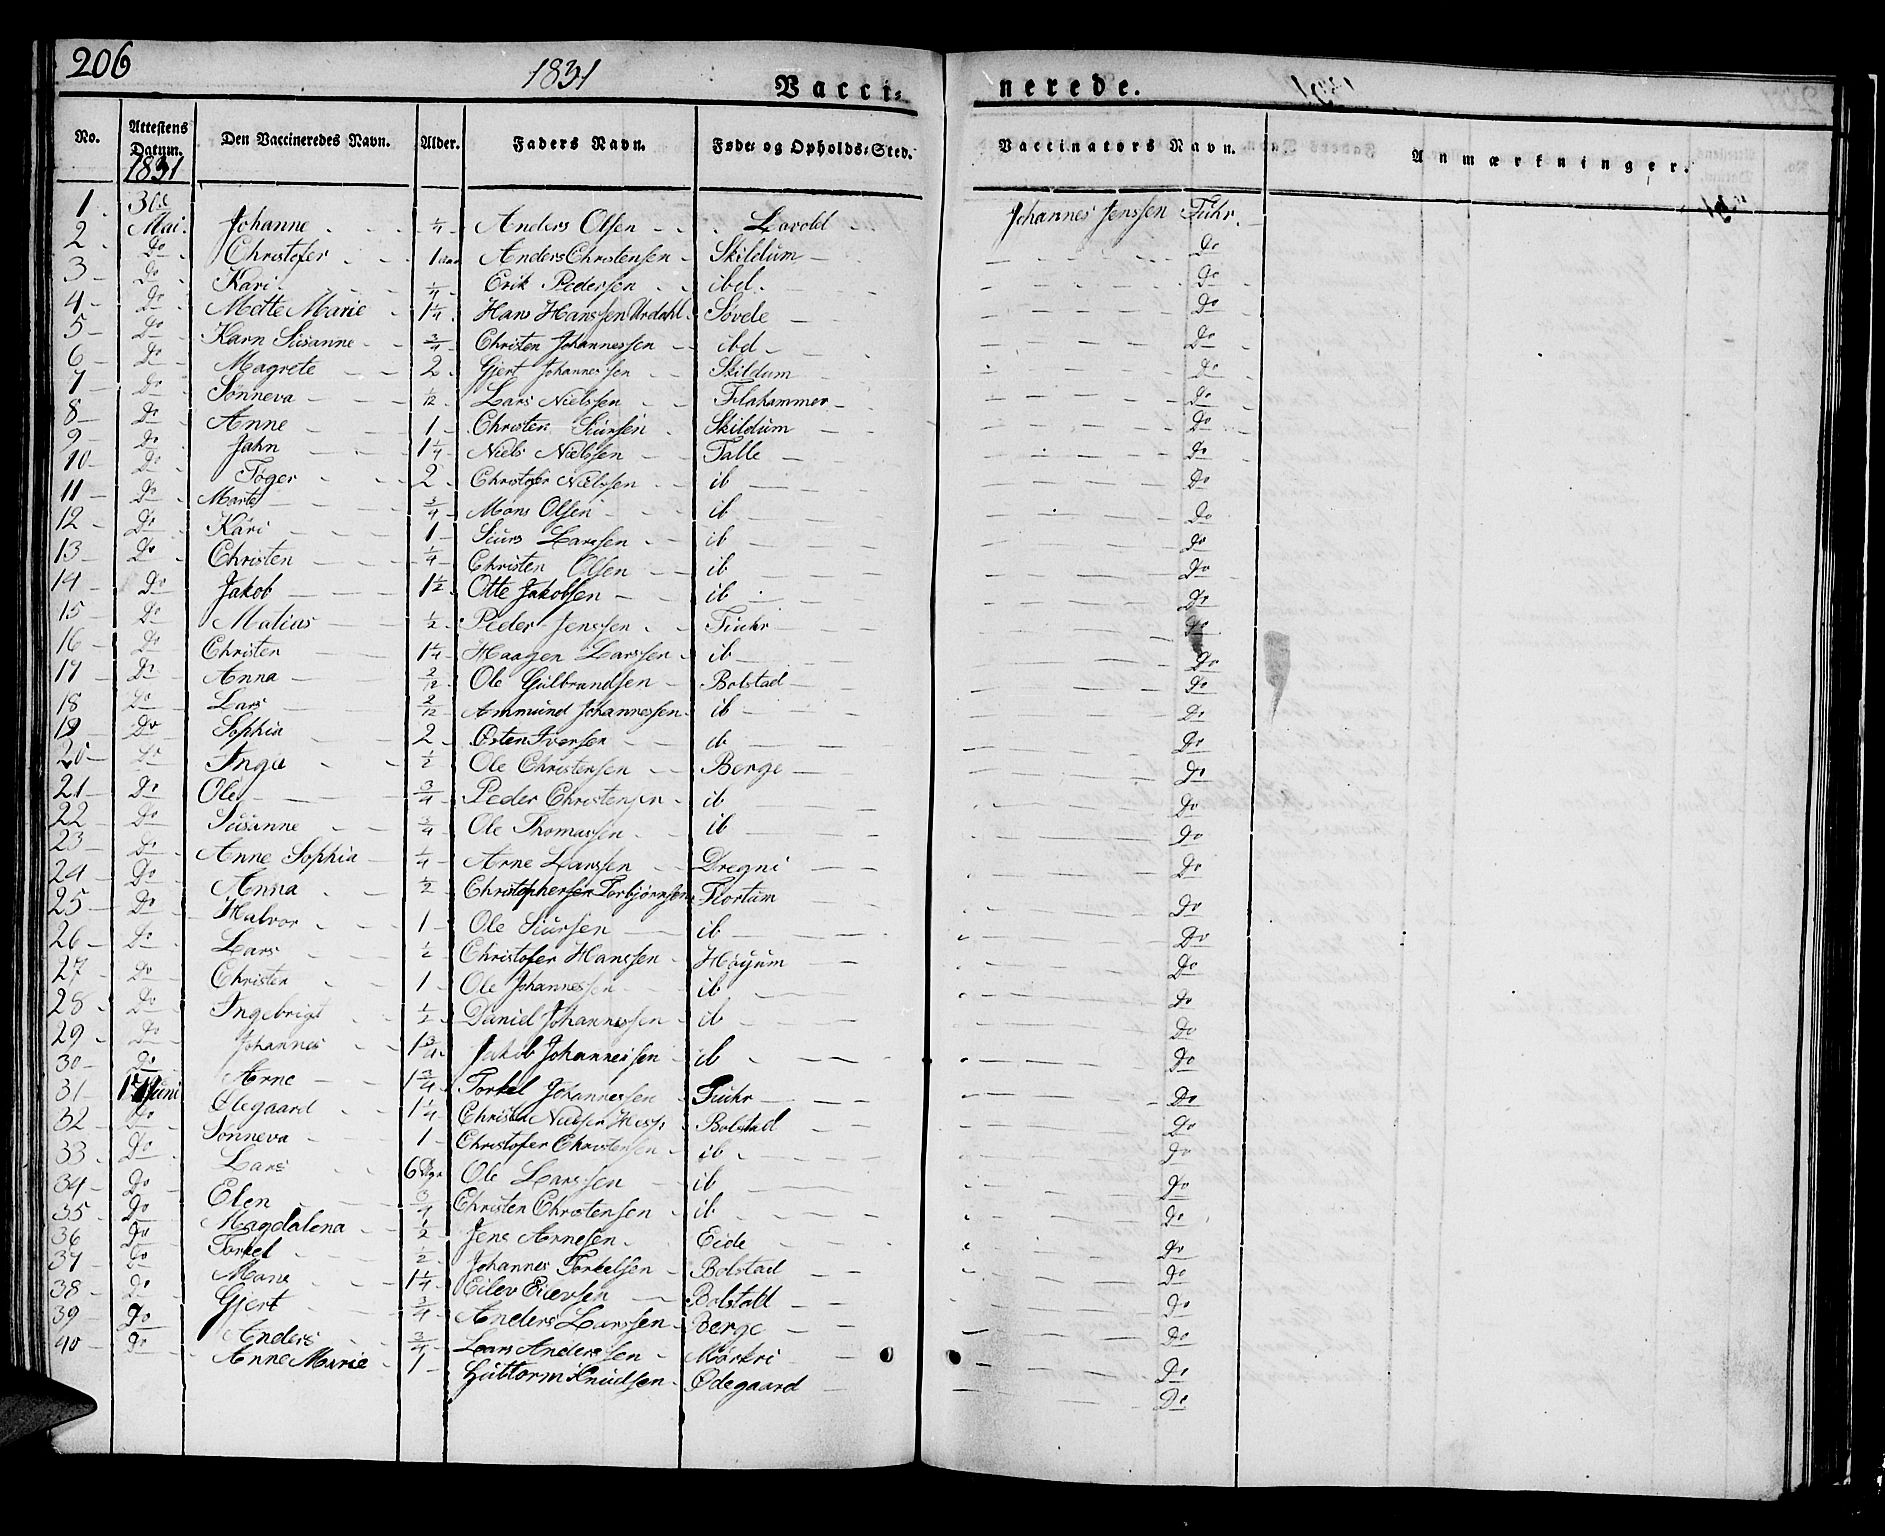 206
1831
Vacci-
nerede.
No. Attestens Datum. Den Vaccineredes Navn. Alder. Faders Navn. Føde- og Opholds-Sted. Vaccinators Navn. Anmærkninger.
1831
1. 30te Mai. Johanne 1/4 Anders Olsen Lavold Johannes Jenssen Fuhr.
2 Do Christofer 1 Anders Christensen Skildum Do
3 Do Kari 1/4 Erik Pedersen ibd. Do
4 Do Mette Marie 1 1/4 Hans Hanssen Urdahl Søvde Do
5 Do Karn Susanne 3/4 Christen Johannessen ibd Do
6 Do Magrete 2 Gjert Johannessen Skildum Do
7 Do Sønneva 1/12 Lars Nielssen Flahammer Do
8 Do Anne 1 Christen Siursen Skildum Do
9 Do Jahn 1 1/4 Niels Nielssen Talle Do
10 Do Tøger 2 Christofer Nielssen ib Do
11 Do Marte 3/4 Mons Olsen ib Do
12 Do Kari 1 Siurs Larssen ib Do
13 Do Christen 1/4 Christen Olsen ib Do
14 Do Jakob 1 1/2 Otte Jakobsen ib Do
15 Do Matias 1/2 Peder Jenssen Fuhr Do
16 Do Christen 1 1/4 Haagen Larssen ib Do
17 Do Anna 2/12 Ole Gulbrandsen Bolstad Do
18 Do Lars 2/12 Ammund Johannessen ib Do
19 Do Sophia 2 Østen Iversen ib Do
20 Do Inga 1/2 Ole Christensen Berge Do
21 Do Ole 3/4 Peder Christensen ib Do
22 Do Susanne 3/4 Ole Thomassen ib Do
23 Do Anne Sophia 1/4 Arne Larssen Dregni Do
24 Do Anna 1/2 Christophersen Torbjørnsen Flortum Do
25 Do Halvor 1 Ole Siursen ib Do
26 Do Lars 1/2 Christofer Hanssen Høyum Do
27 Do Christen 1 Ole Johannessen ib Do
28 Do Ingebrigt 1/2 Daniel Johannessen ib Do
29 Do Johannes 1 3/4 Jakob Johannessen ib Do
30 Do Arne 1 3/4 Torkel Johannessen Fuhr Do
31 Juni Olegaard 1 1/4 Christen Bolstad Do
32 Do Sønneva 1 Christofer Christensen ib Do
33 Do Lars 6 Ole Larssen ib Do
34 Do Elen 3/4 Christen Christensen ib Do
35 Do Magdalena 1/2 Jens Arnesen Eide Do
36 Do Torkel 1/2 Johannes Torkelsen Bolstad Do
37 Do 1 1/4 Eilev Bolstad Do
38 Do Gjert 3/4 Anders Larssen Berge Do
39 Do Anders 3/4 Lars Anderssen Mørkri Do
40 Do Anne Marie 1 Guttorm Knudsen Ødegaard Do